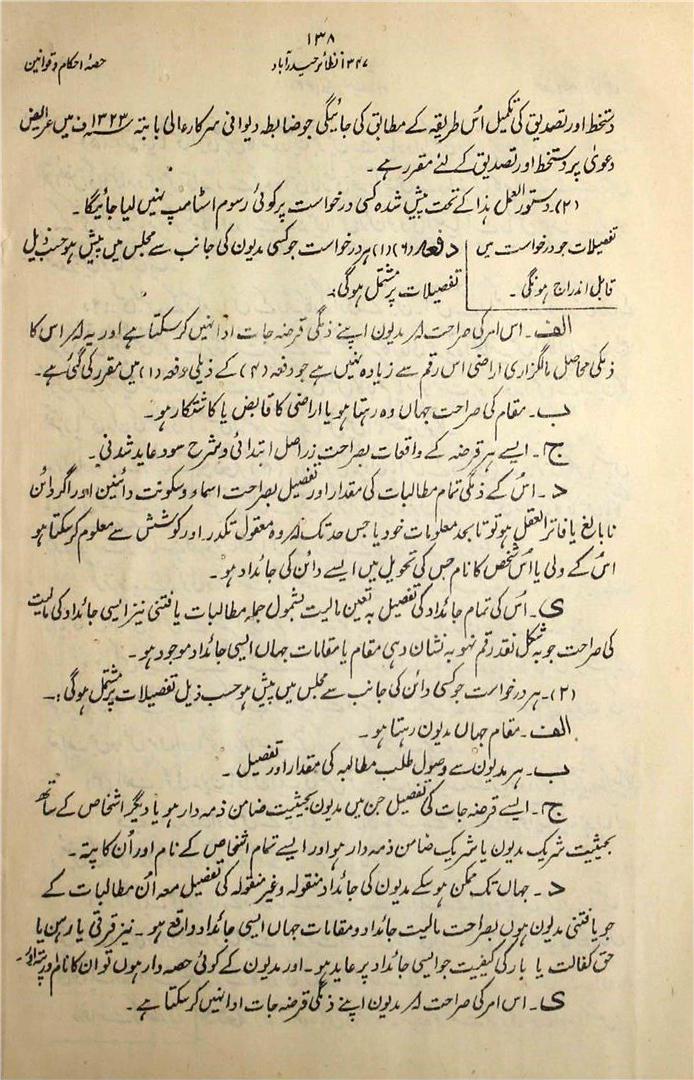 ۱۳۸
۱۳۴۷ ف نظائر حیدرآباد
حصۂ احکام و قوانین
دستخط اور تصدیق کی تکمیل اُس طریقہ کے مطابق کی جائیگی جو ضابطہ دیوانی سرکارعالی بابتہ ۱۳۲۳ ف میں عرایض
دعویٰ پر دستخط اور تصدیق کے لئے مقرر ہے۔
(۲)۔ دستور العمل ہذا کے تحت پیش شدہ کسی درخواست پر کوئی رسوم اسٹامپ نہیں لیا جائیگا۔
تفصیلات جو درخواست میں
قابل اندراج ہونگی۔
دفعہ (۶) (۱) ہر درخواست جو کسی مدیون کی جانب سے مجلس میں پیش ہو حسب ذیل
تفصیلات پر مشتمل ہوگی:۔
الف۔ اس امر کی صراحت کہ مدیون اپنے ذمگی قرضہ جات ادا نہیں کرسکتا ہے اور یہ کہ اس کا
ذمگی محاصل مالگزاری اراضی اس رقم سے زیادہ نہیں ہے جو دفعہ (۴) کے ذیلی دفعہ (۱) میں مقرر کی گئی ہے۔
ب۔ مقام کی صراحت جہاں وہ رہتا ہو یا اراضی کا قابض یا کاشتکار ہو۔
ج۔ ایسے ہر قرضہ کے واقعات بصراحت زر اصل ابتدائی و شرح سود عاید شدنی۔
د۔ اُس کے ذمگی تمام مطالبات کی مقدار اور تفصیل بصراحت اسماء و سکونت دائنین اور اگر دائن
نابالغ یا فاتر العقل ہو تو تابحد معلومات خود یا جس حد تک کہ وہ معقول تگ و دو اور کوشش سے معلوم کرسکتا ہو
اُس کے ولی یا اُس شخص کا نام جس کی تحویل میں ایسے دائن کی جائداد ہو۔
ی۔ اُس کی تمام جائداد کی تفصیل بہ تعین مالیت بشمول جملہ مطالبات یافتنی نیز ایسی جائداد کی مالیت
کی صراحت جو بہ شکل نقد رقم نہو بہ نشان دہی مقام یا مقامات جہاں ایسی جائداد موجود ہو۔
(۲)۔ ہر درخواست جو کسی دائن کی جانب سے مجلس میں پیش ہو حسب ذیل تفصیلات پر مشتمل ہوگی:۔
الف۔ مقام جہاں مدیون رہتا ہو۔
ب۔ ہر مدیون سے وصول طلب مطالبہ کی مقدار اور تفصیل۔
ج۔ ایسے قرضہ جات کی تفصیل جن میں مدیون بحیثیت ضامن ذمہ دار ہو یا دیگر اشخاص کے ساتھ
بحیثیت شریک مدیون یا شریک ضامن ذمہ دار ہو اور ایسے تمام اشخاص کے نام اور اُن کا پتہ۔
د۔ جہاں تک ممکن ہوسکے مدیون کی جائداد منقولہ و غیر منقولہ کی تفصیل معہ اُن مطالبات کے
جو یافتنی مدیون ہوں بصراحت مالیت جائداد و مقامات جہاں ایسی جائداد واقع ہو۔ نیز قرقی یا رہن یا
حق کفالت یا بار کی کیفیت جو ایسی جائداد پر عاید ہو۔ اور مدیون کے کوئی حصہ دار ہوں تو ان کا نام و پتہ
ی۔ اس امر کی صراحت کہ مدیون اپنے ذمگی قرضہ جات ادا نہیں کرسکتا ہے۔